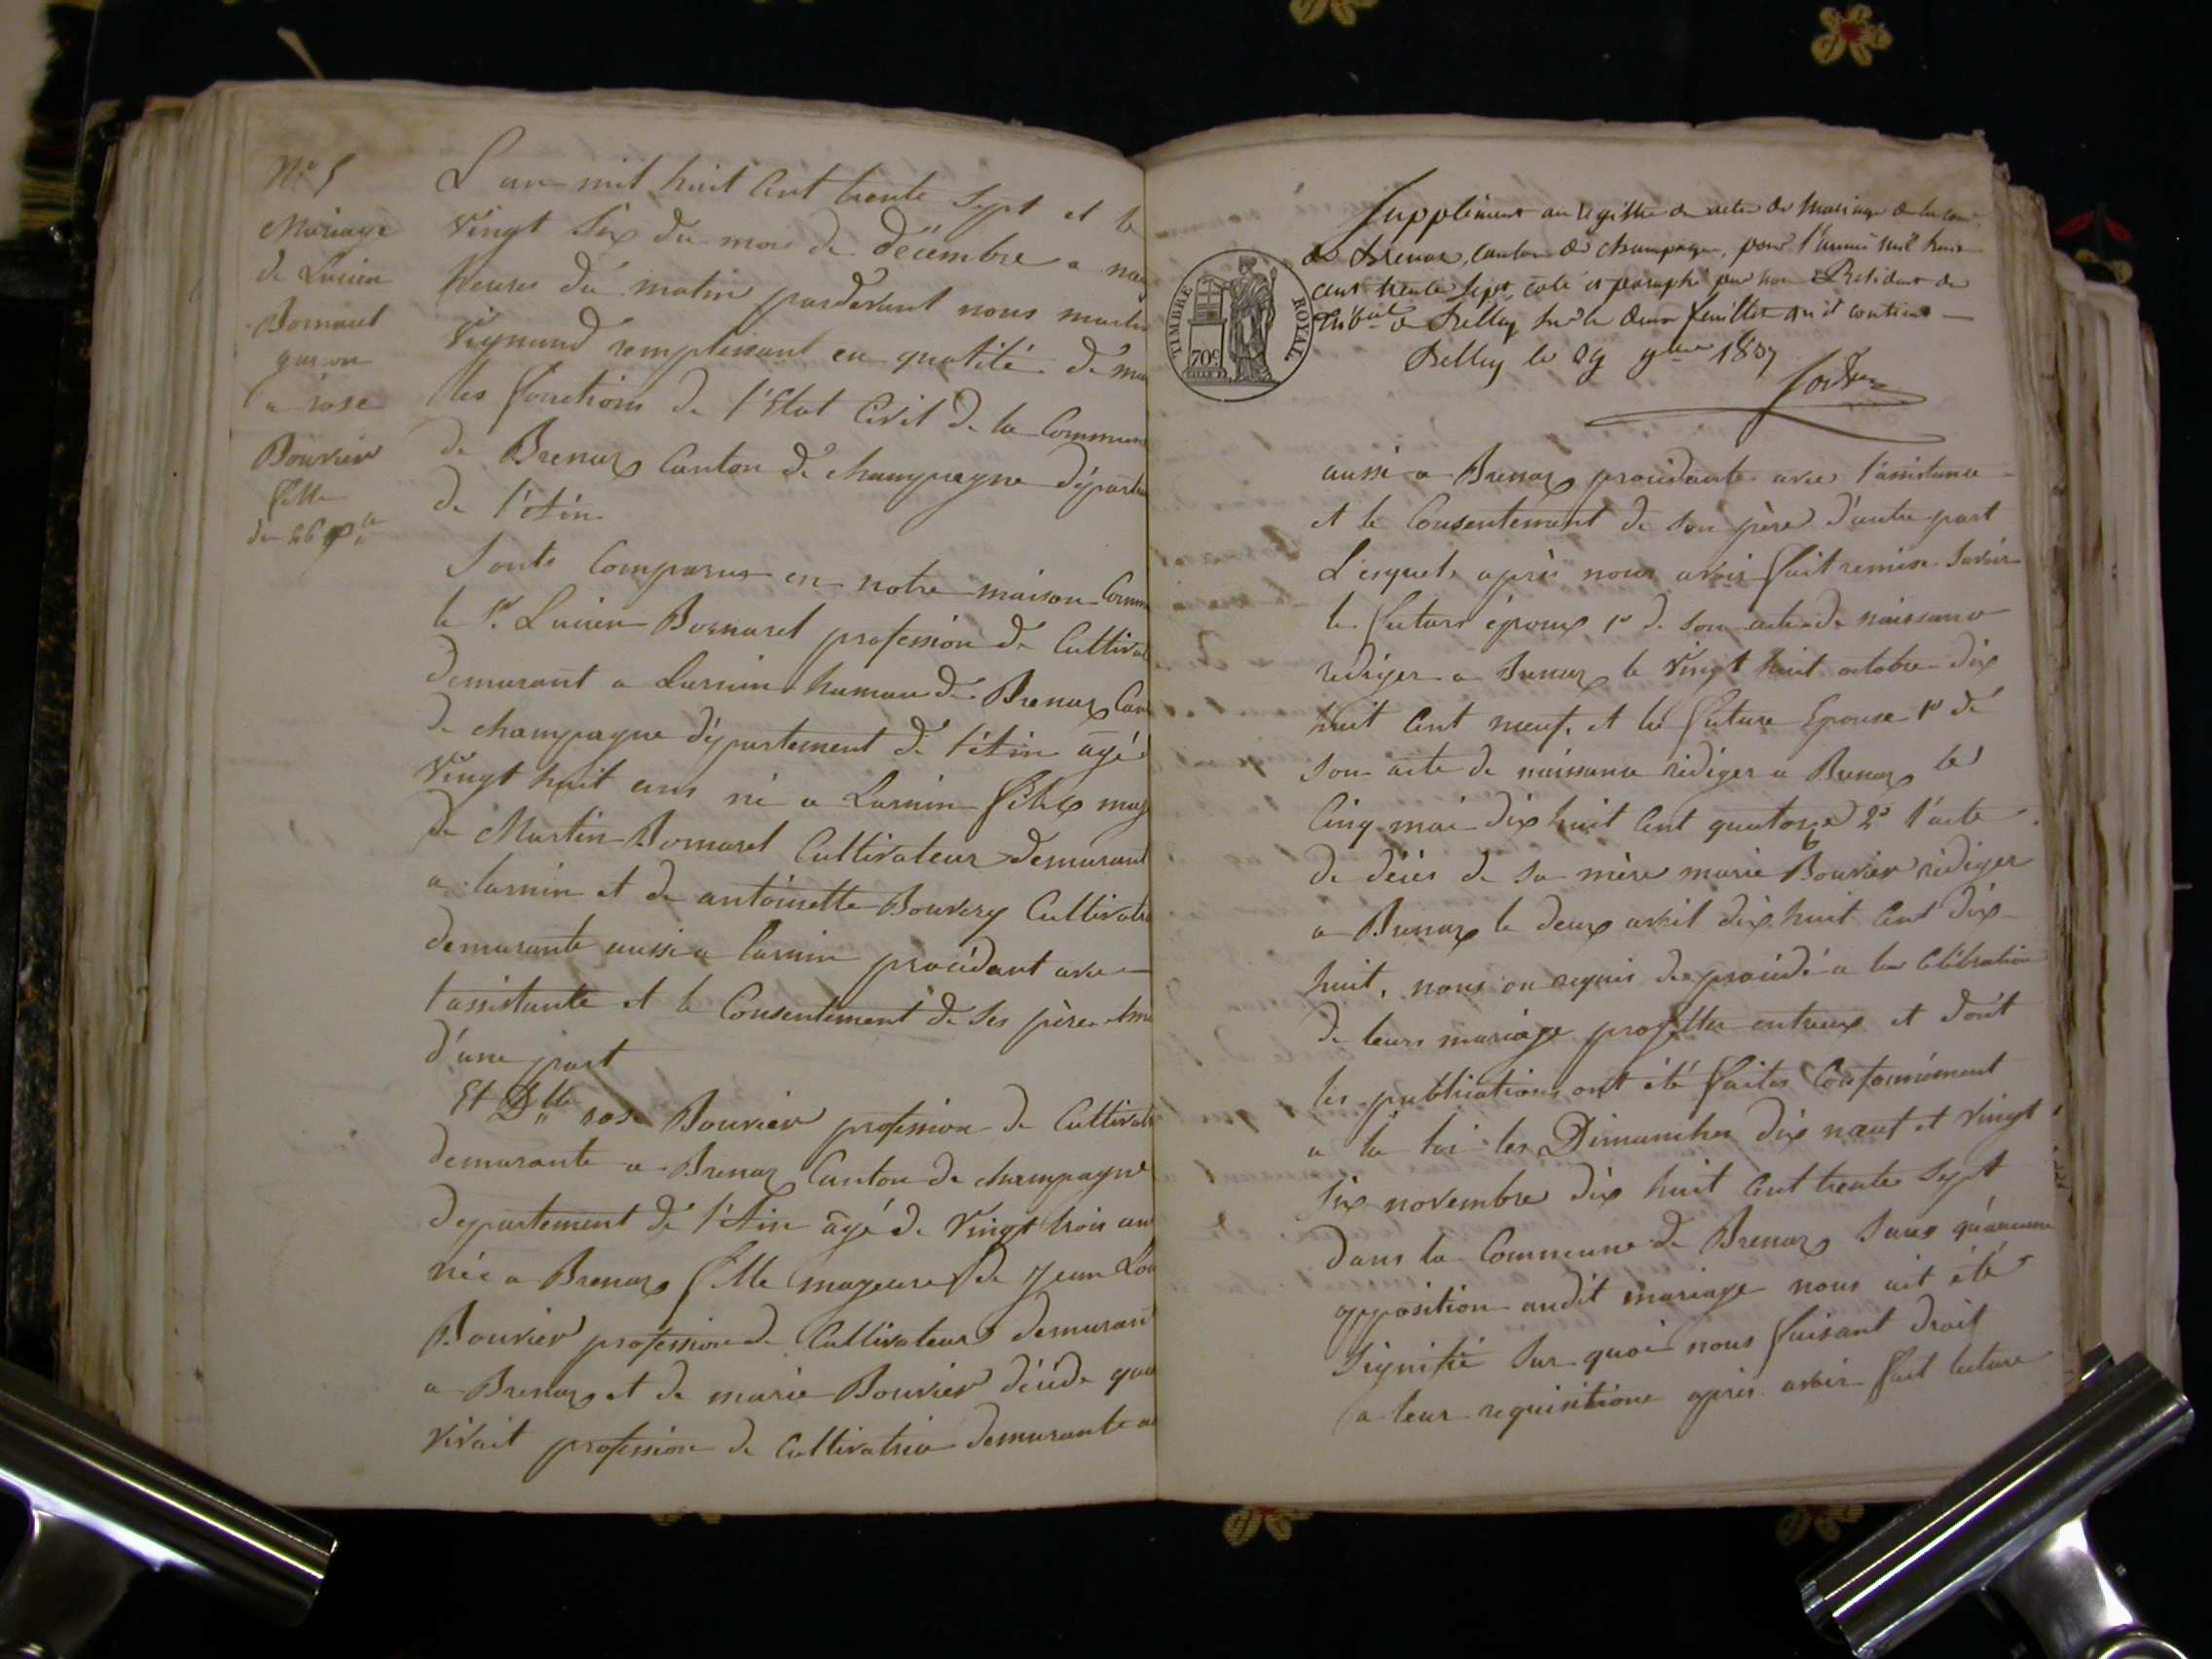 N° 5
Mariage
de Lucien
Bornarel
garson
a rose
Bouvier
fille
du 26
L'an mil huit Cent trente Sept et le
Vingt Six du mois de décembre a
heures du matin pardevant nous
Vignand remplissant en qualité de
les fonctions de l'Etat Civil de la Commune
de Brenaz Canton de Champagne
de l'Ain
Sonts Comparus en notre maison
le Sr. Lucien Bornarel profession de
demurant a Larnin hamau de Brenaz
de Champagne département de l'Ain agé
Vingt huit ans né a Larnin fils
de Martin Bornarel Cultivateur demurant
a larnin et de antoinette Bouvery
demurante aussi a larnin procédant avec
l'assistante et le Consentement de Ses père
d'une part
Et Dlle rose Bouvier profession de
demurante a Brenaz Canton de champagne
departement de l'Ain agé de Vingt trois ans
née a Brenaz fille mageure de Jean
Bouvier profession de Cultivateur demurant
a Brenaz et de marie Bouvier décéde
vivait profession de Cultivatrice demurante
Supplément au registre des actes de Mariage de la
de Brenaz, canton de Champagne, pour l'année mil huit
cent trente sept, coté et paraphé par nous Président du
Tribal de Belley sur les deux feuillets qu'il contient
Belley le 29 9bre 1837
TIMBRE ROYAL
70c
aussi a Brenaz procédante avec l'assistance
et le Consentement de son père d'autre part
Lesquels après nous avoir fait remise Savoir
le futurs époux 1° de Son acte de naissance
rediger a Brenaz le Vingt huit octobre dix
huit Cent neuf, et la future Epouse 1° de
Son acte de naissance rédiger a Brenaz le
Cinq mai dix huit Cent quatorze 2° l'acte
de décès de Sa mère marie Bouvier rédiger
a Brenaz le deux avril dix huit Cent dix
huit, nous on requis de procédé a la Célébration
de leurs mariage projetter entreux et dont
les publications ont été faites Conformément
a la loi les Dimanches dix neuf et vingt
six novembre dix huit Cent trente Sept
dans la Commune de Brenaz Sans qu'aucune
opposition audit mariage nous ait été
Signifié Sur quoi nous faisant droit
a leur requisitions après avoir fait lecture